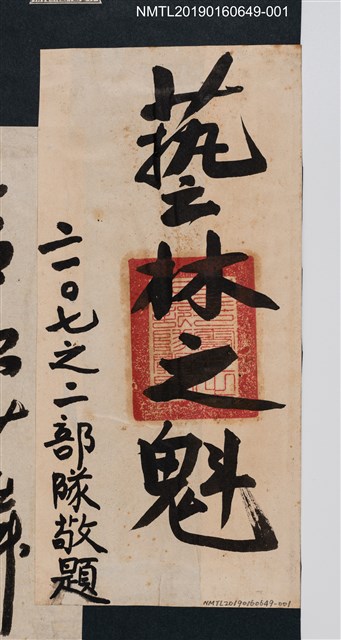 NMTL20190160649-001
藝林之魁
二一〇七之二部隊敬題
NMTL20190160649-001